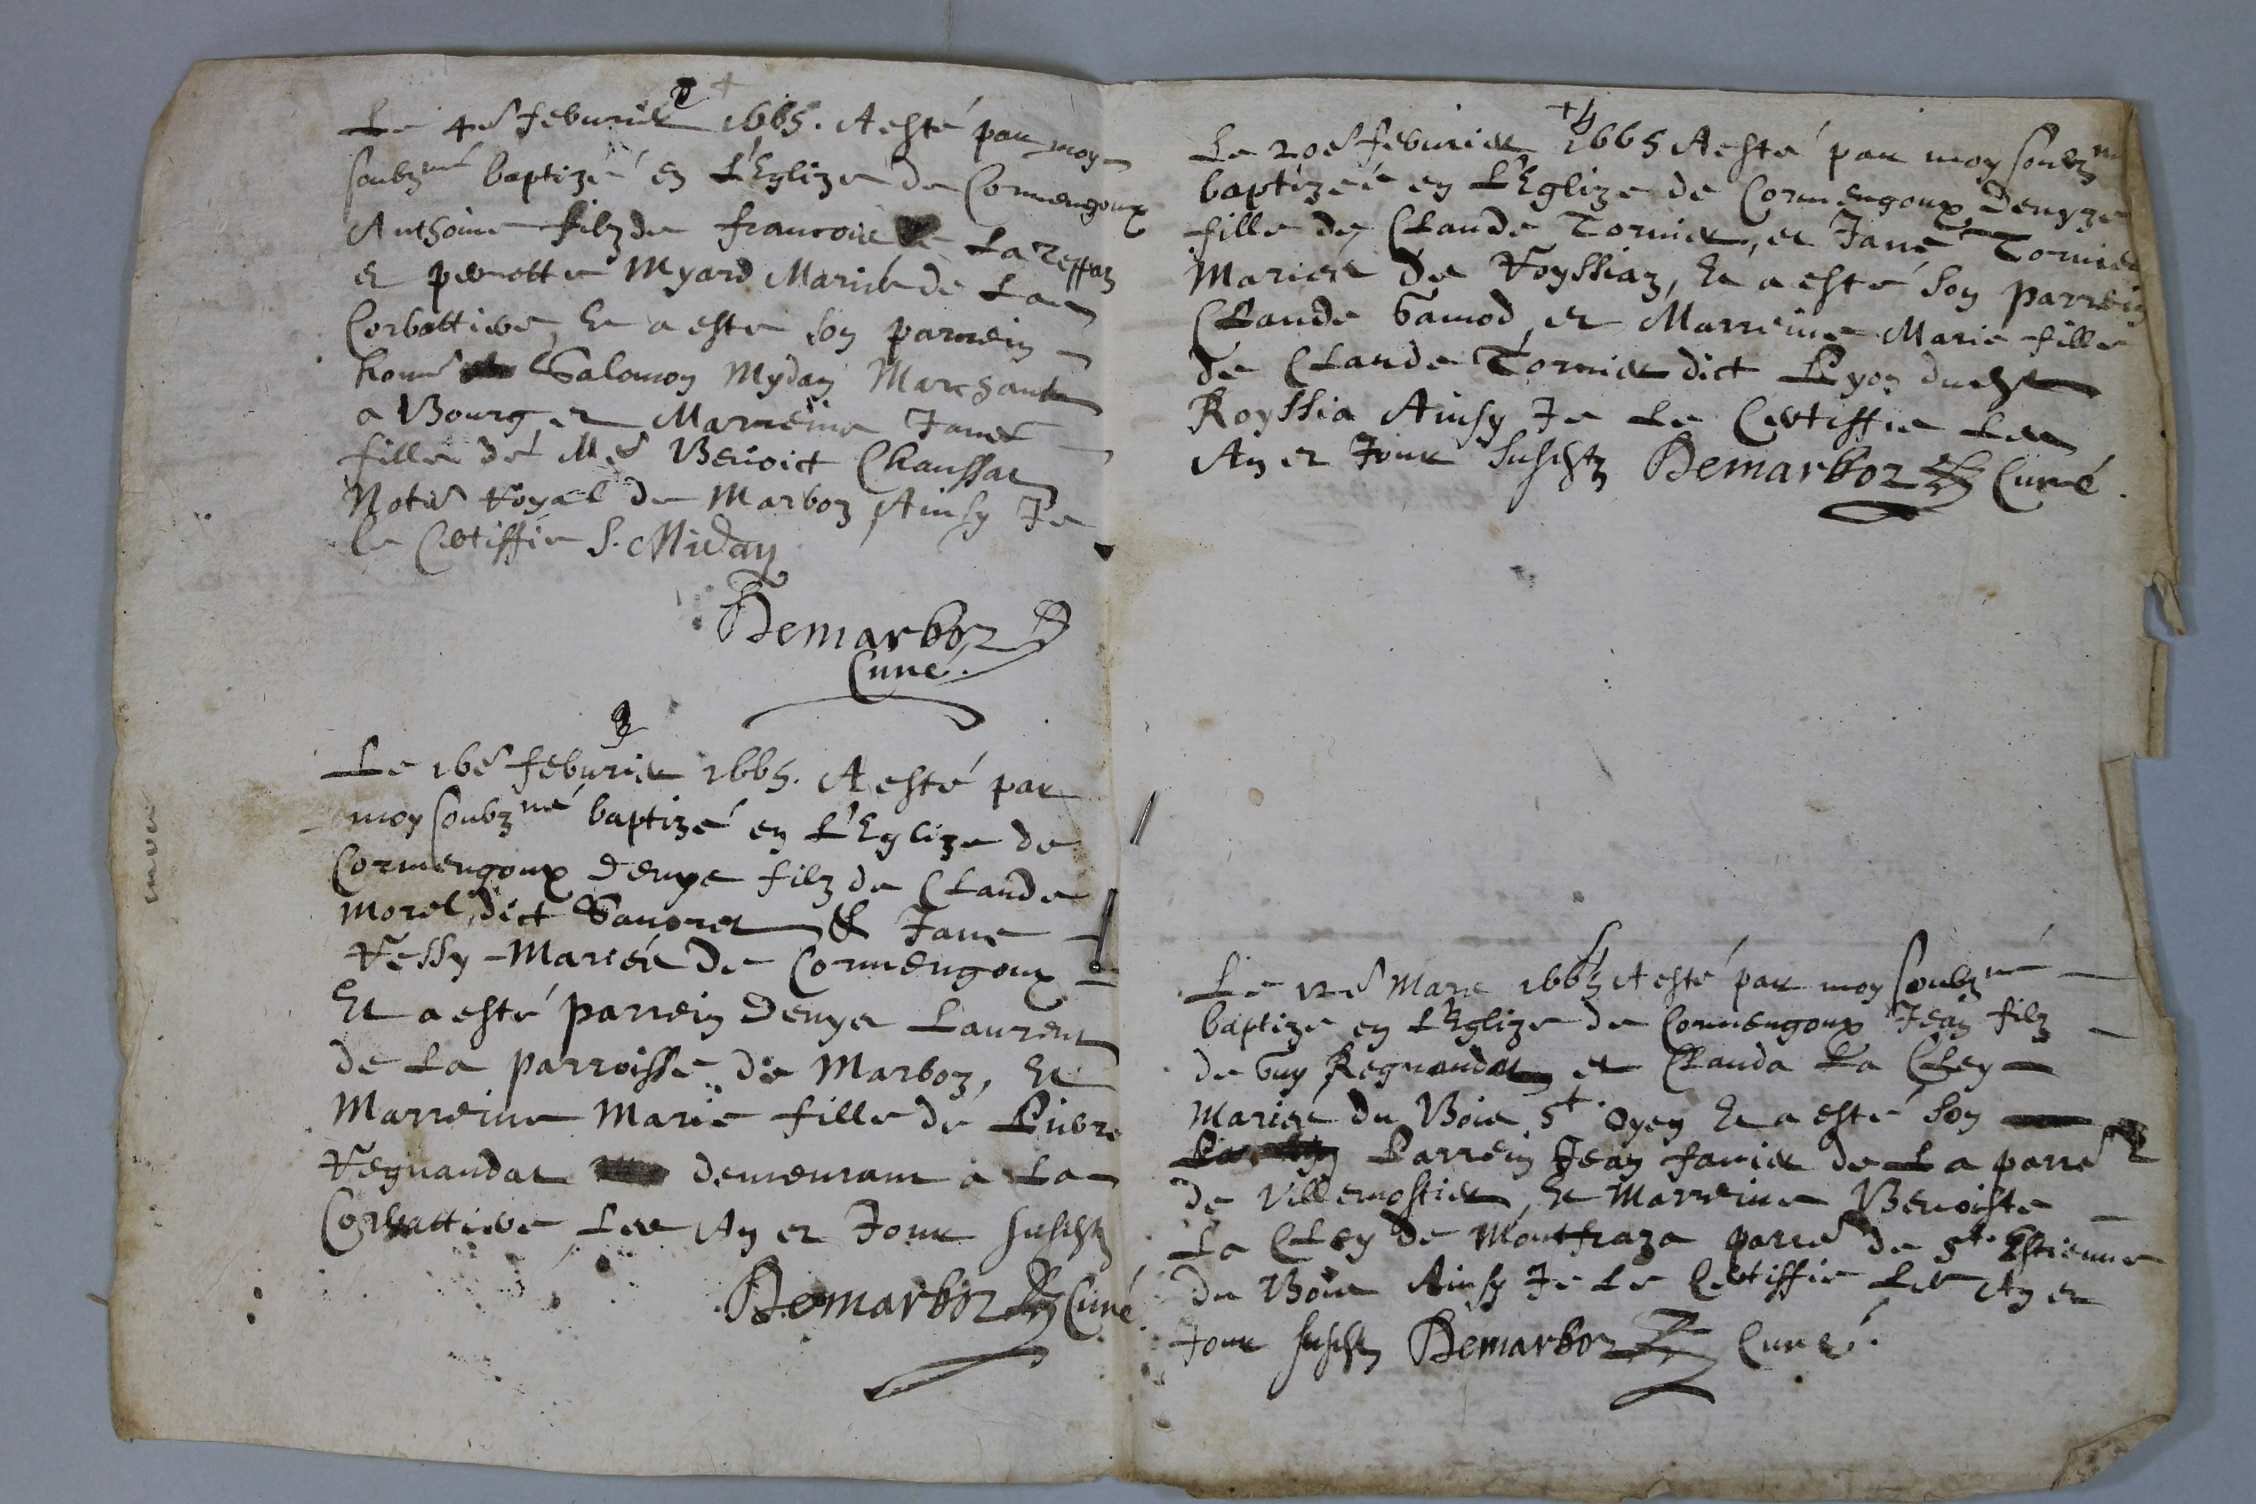 Le 4e febvrier 1665. A esté par moy
soubzné baptizé en L'Eglize de Cormengoux
Anthoine filz de francois La Teppaz
et pernette Myard Mariés de La
Corbattiere, Et a esté son parrein
honé Salomon Mydan Marchant
a Bourg et Marreine Jane
fille de Me Benoict Chaussat
Notre Royal de Marboz Ainsy Je
le Certiffie S. Midan
Demarboz
Curé.
3
Le 16e febvrier 1665. A esté par
moy soubzné baptizé en L'Eglize de
Cormengoux Denys filz de Claude
Morel, dict Savoret & Jane
Vessy Mariés de Cormengoux
Et a esté parrein Denys Laurent
de La parroisse de Marboz, Et
Marreine Marie fille de Pierre
Regnaudat demeurant a La
Corbattiere Les An et Jour susdtz
Demarboz Curé
+4
Le 20e febvrier 1665 A esté par moy soubzné
baptizée en L'Eglize de Cormengoux Denyze
fille de Claude Tornier, et Jane Tornier
Mariés de Royssiaz, Et a esté son parrein
Claude Gamod, et Marreine Marie fille
de Claude Tornier dict Lyon dudt
Royssia Ainsy Je Le Certiffie Les
An et Jour susdtz Demarboz Curé.
5
Le 12e Mars 1665 A esté par moy soubzné
baptizé en L'Eglize de Cormengoux Jean filz
de Guy Regnaudat et Clauda La Cley
Mariés du Bois St. Oyen Et a esté son
Parrein Jean favier de La parre
de Villemostier, Et Marreine Benoiste
La Cley de Montfraza parre de St. Estienne
du Bois Ainsy Je Le Certiffie Les An et
Jour susdtz Demarboz Curé.